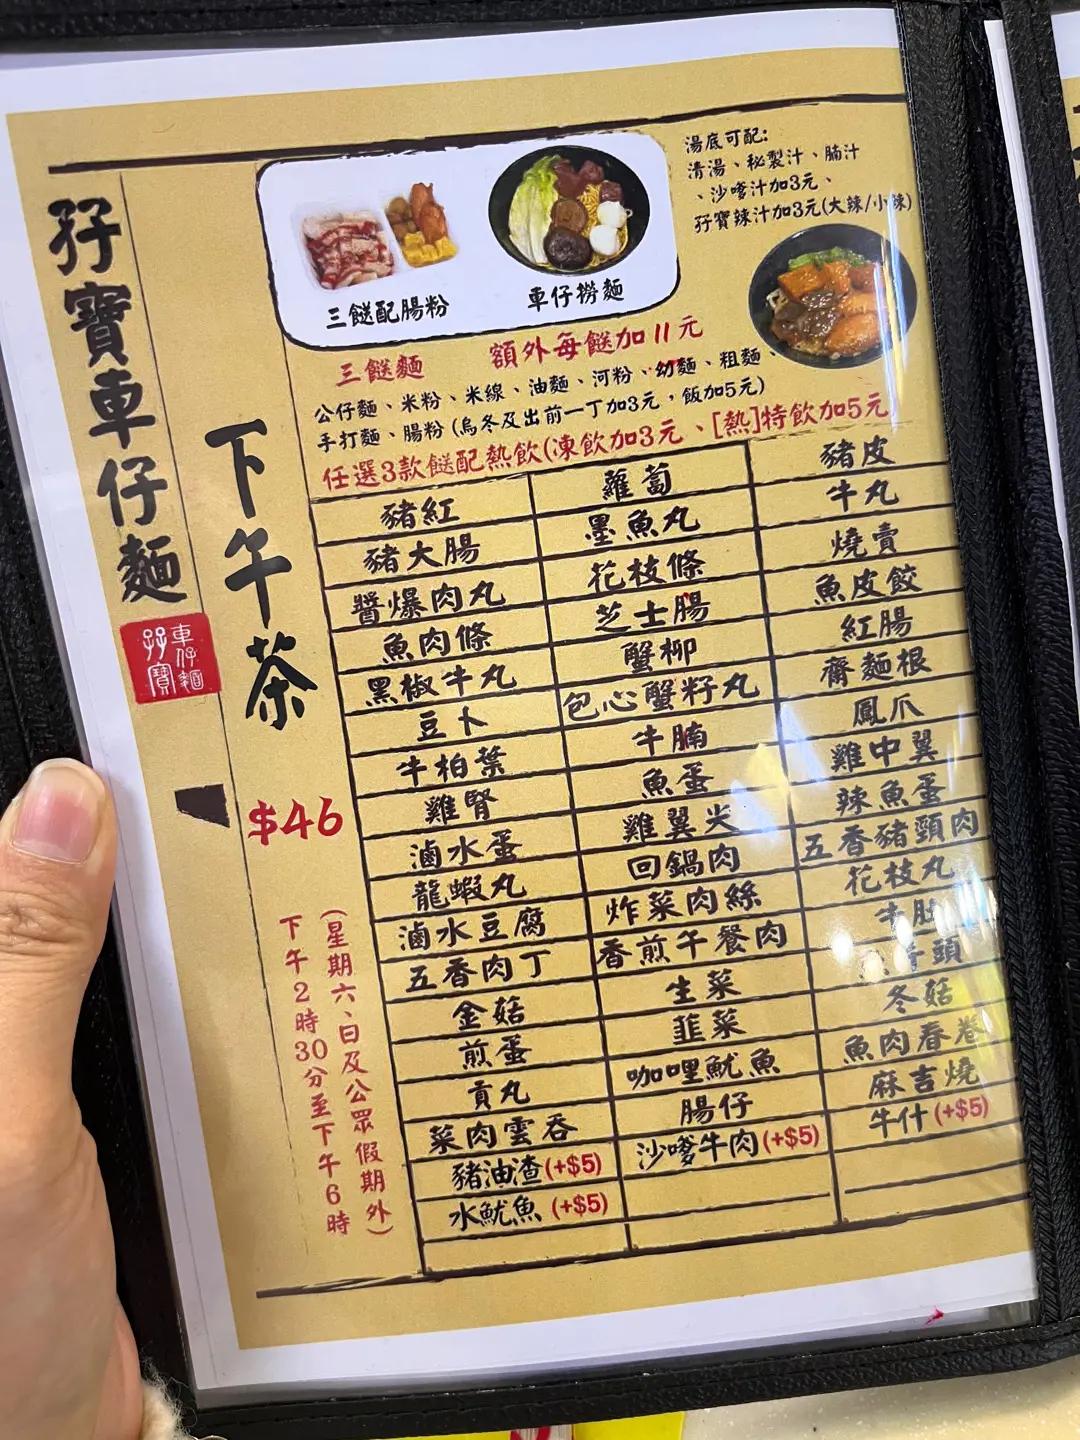 孖寶車仔麵
車仔麵
孖寶
下午茶
$46
(星期六、日及公眾假期外)
下午2時30分至下午6時
三餸配腸粉
車仔撈麵
湯底可配:
清湯、秘製汁、腩汁
、沙嗲汁加3元、
孖寶辣汁加3元(大辣/小辣)
三餸麵
額外每餸加11元
公仔麵、米粉、米線、油麵、河粉、幼麵、粗麵、
手打麵、腸粉(烏冬及出前一丁加3元，飯加5元)
任選3款餸配熱飲(凍飲加3元、[熱]特飲加5元
豬紅
豬大腸
醬爆肉丸
魚肉條
黑椒牛丸
豆卜
牛柏葉
雞腎
滷水蛋
龍蝦丸
滷水豆腐
五香肉丁
金菇
煎蛋
貢丸
菜肉雲吞
豬油渣(+$5)
水魷魚(+$5)
蘿蔔
墨魚丸
花枝條
芝士腸
蟹柳
包心蟹籽丸
牛腩
魚蛋
雞翼尖
回鍋肉
炸菜肉絲
香煎午餐肉
生菜
韮菜
咖哩魷魚
腸仔
沙嗲牛肉(+$5)
豬皮
牛丸
燒賣
魚皮餃
紅腸
齋麵根
鳳爪
雞中翼
辣魚蛋
五香豬頸肉
花枝丸
牛肚
頭
冬菇
魚肉春卷
麻吉燒
牛什(+$5)